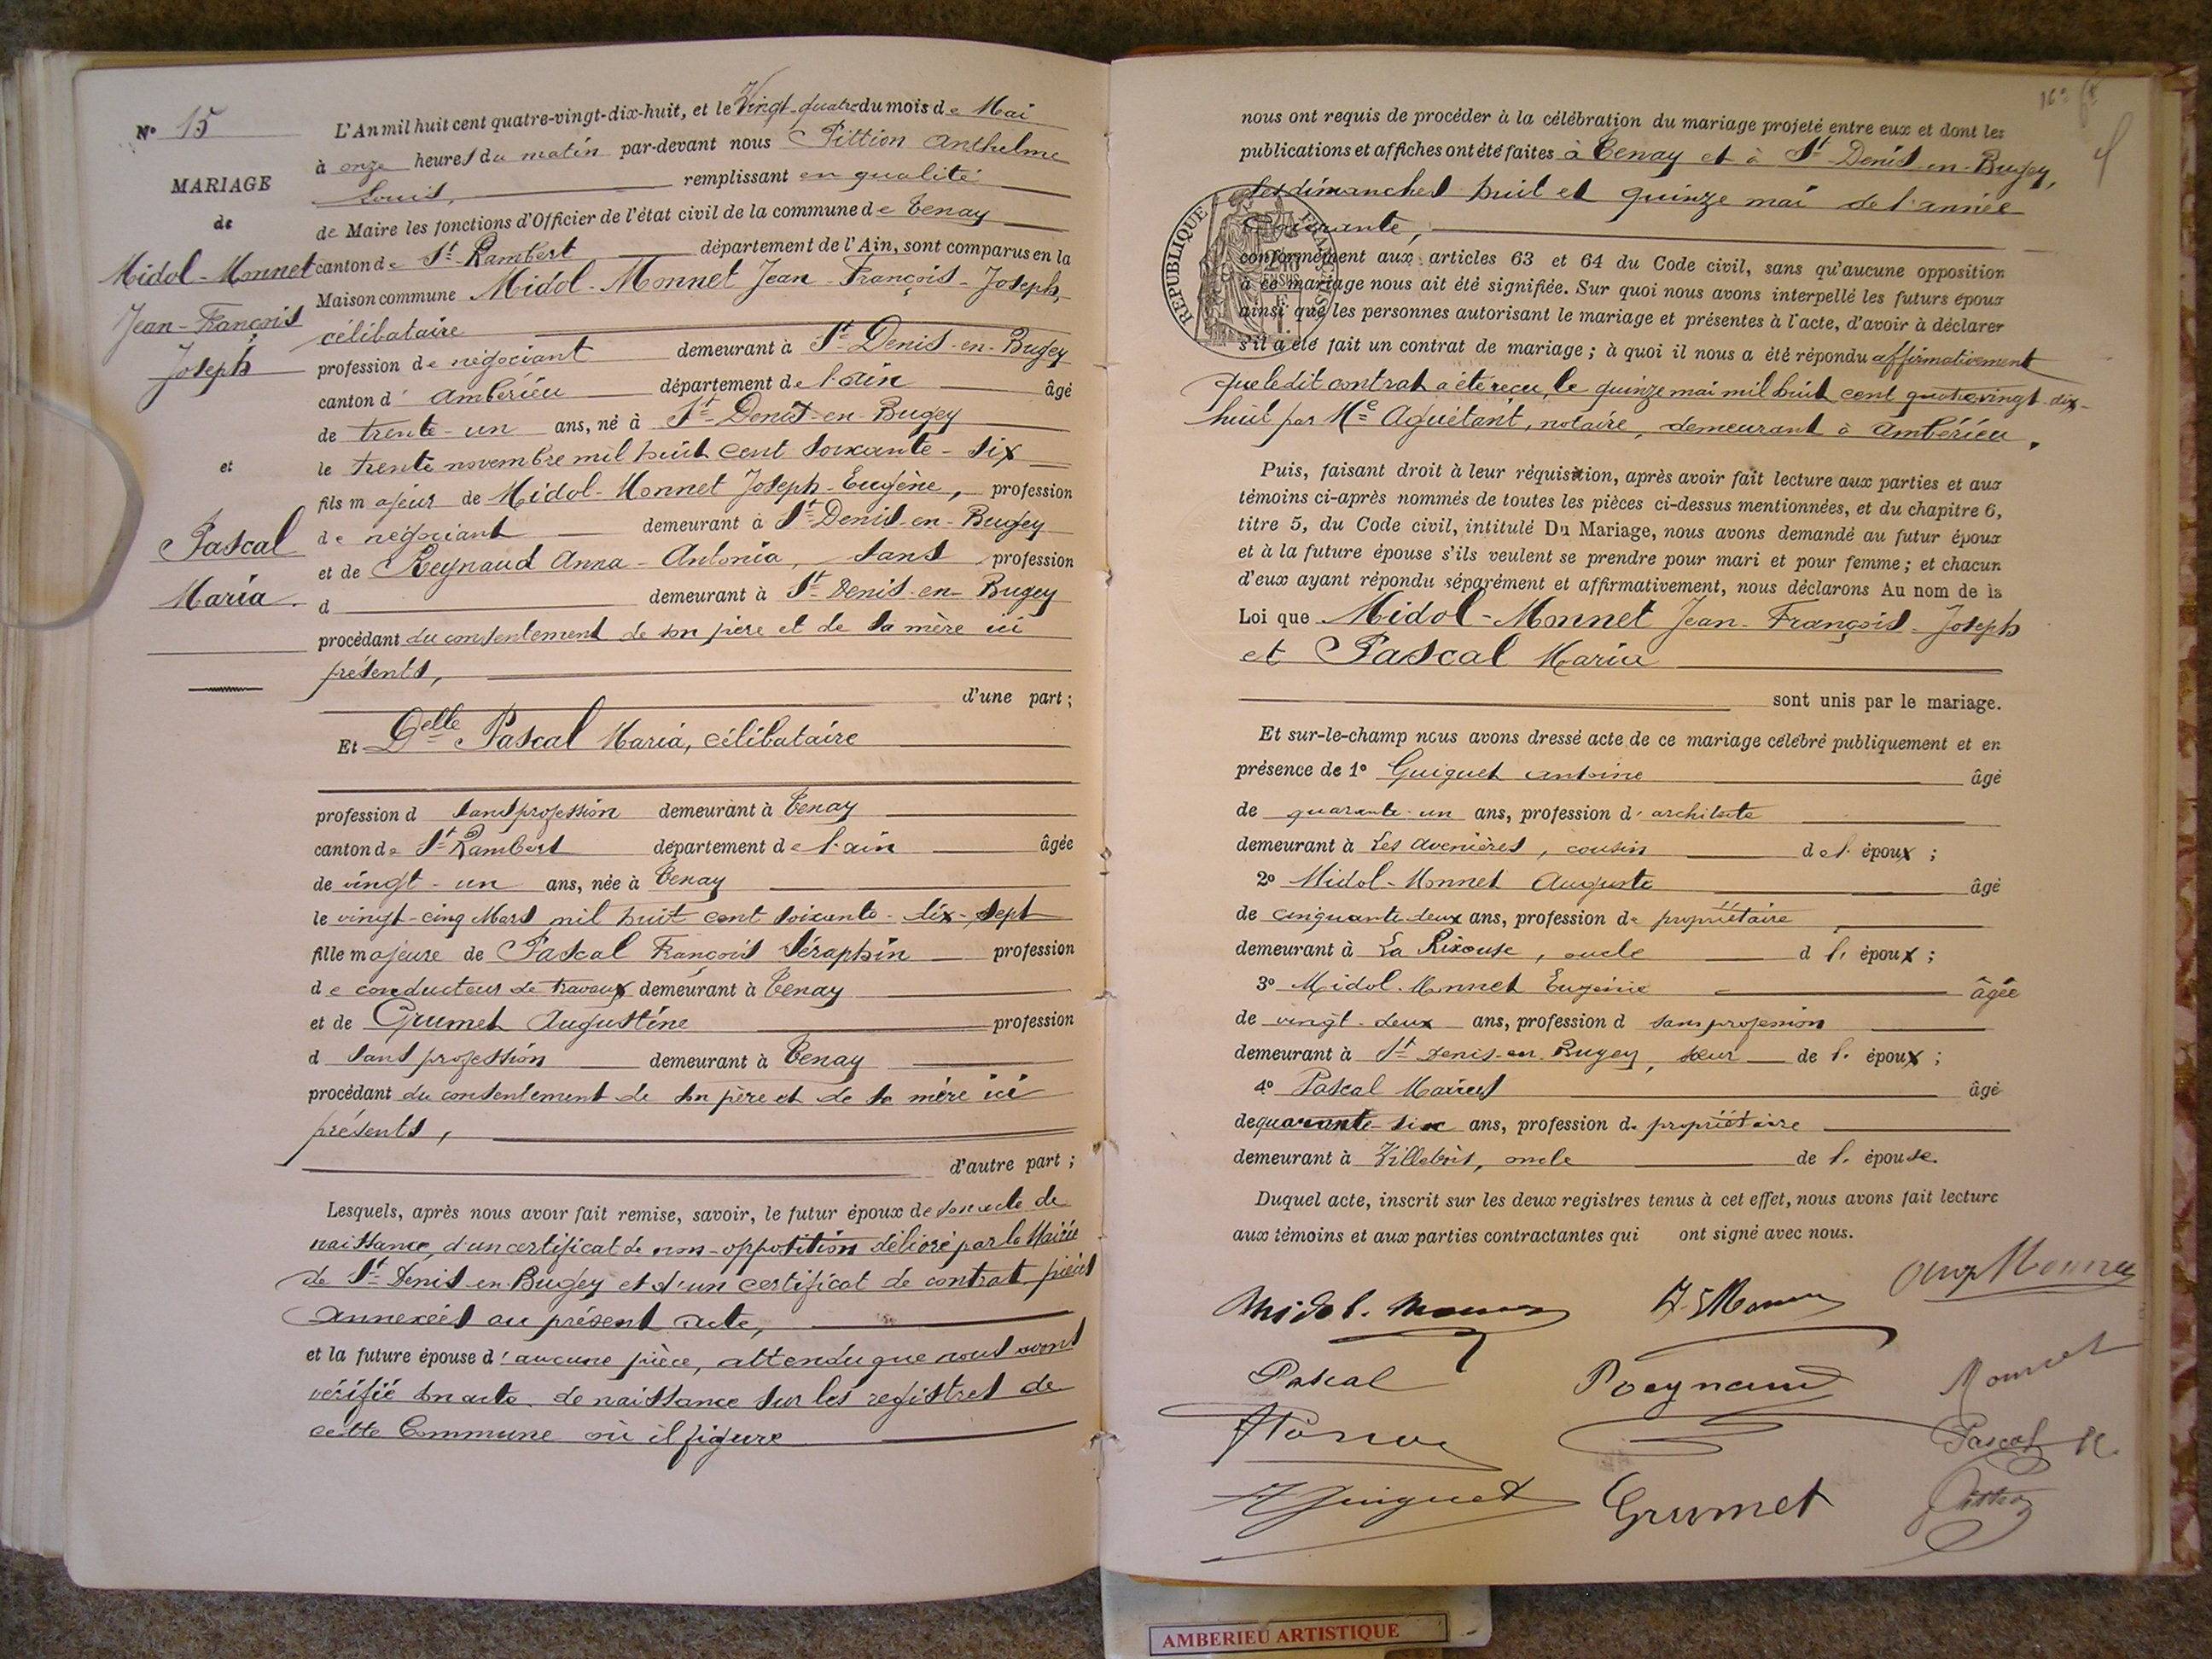 N° 15
MARIAGE
de
Midol-Monnet
Jean-François
Joseph
et
Pascal
Maria
L'An mil huit cent quatre-vingt-dix-huit, et le Vingt-quatre du mois de Mai
à onze heures du matin par-devant nous Pittion Anthelme
Louis, remplissant en qualité
de Maire les fonctions d'Officier de l'état civil de la commune de Tenay
canton de St Rambert département de l'Ain, sont comparus en la
Maison commune Midol-Monnet Jean-François-Joseph,
célibataire
profession de négociant demeurant à St Denis-en-Bugey
canton d'Ambérieu département de l'ain âgé
de trente-un ans, né à St Denis-en-Bugey
le trente novembre mil huit cent soixante-six
fils majeur de Midol-Monnet Joseph-Eugène, profession
de négociant demeurant à St Denis-en-Bugey
et de Reynaud Anna-Antonia, sans profession
d demeurant à St Denis-en-Bugey
procédant du consentement de son père et de sa mère ici
présents,
d'une part;
Et Delle Pascal Maria, célibataire
profession d sans profession demeurant à Tenay
canton de St Rambert département de l'ain âgée
de vingt-un ans, née à Tenay
le vingt-cinq Mars mil huit cent soixante-dix-sept
fille majeure de Pascal François Séraphin profession
de conducteur de travaux demeurant à Tenay
et de Grumet Augustine profession
d sans profession demeurant à Tenay
procédant du consentement de son père et de sa mère ici
présents,
d'autre part;
Lesquels, après nous avoir fait remise, savoir, le futur époux de son acte de
naissance, d'un certificat de non-opposition délivré par la Mairie
de St Denis-en-Bugey et d'un certificat de contrat, pièces
annexées au présent acte,
et la future épouse d'aucune pièce, attendu que nous avons
vérifié son acte de naissance sur les registres de
cette Commune où il figure
nous ont requis de procéder à la célébration du mariage projeté entre eux et dont les
publications et affiches ont été faites à Tenay et à St Denis-en-Bugey,
les dimanches huit et quinze mai de l'année
Courante,
REPUBLIQUE FRANÇAISE
conformément aux articles 63 et 64 du Code civil, sans qu'aucune opposition
à ce mariage nous ait été signifiée. Sur quoi nous avons interpellé les futurs époux
ainsi que les personnes autorisant le mariage et présentes à l'acte, d'avoir à déclarer
s'il a été fait un contrat de mariage; à quoi il nous a été répondu affirmativement
que ledit contrat a été reçu, le quinze mai mil huit cent quatre vingt-dix-
huit par Me Aguétant, notaire, demeurant à Ambérieu.
Puis, faisant droit à leur réquisition, après avoir fait lecture aux parties et aux
témoins ci-après nommés de toutes les pièces ci-dessus mentionnées, et du chapitre 6,
titre 5, du Code civil, intitulé Du Mariage, nous avons demandé au futur époux
et à la future épouse s'ils veulent se prendre pour mari et pour femme; et chacun
d'eux ayant répondu séparément et affirmativement, nous déclarons Au nom de la
Loi que Midol-Monnet Jean-François-Joseph
et Pascal Maria
sont unis par le mariage.
Et sur-le-champ nous avons dressé acte de ce mariage célébré publiquement et en
présence de 1° Guiguet Antoine âgé
de quarante-un ans, profession d'architecte
demeurant à Les Avenières, cousin de l'époux;
2° Midol-Monnet Auguste âgé
de cinquante-deux ans, profession de propriétaire
demeurant à La Rixouse, oncle d l'époux;
3° Midol-Monnet Eugénie âgée
de vingt-deux ans, profession d sans profession
demeurant à St Denis-en-Bugey, sœur de l'époux;
4° Pascal Marius âgé
de quarante-six ans, profession de propriétaire
demeurant à Villebois, oncle de l'épouse
Duquel acte, inscrit sur les deux registres tenus à cet effet, nous avons fait lecture
aux témoins et aux parties contractantes qui ont signé avec nous.
Midol-Monnet
Pascal
Reynaud
Monnet
Pascal M.
A Guiguet
Grumet
Pittion
AMBERIEU ARTISTIQUE